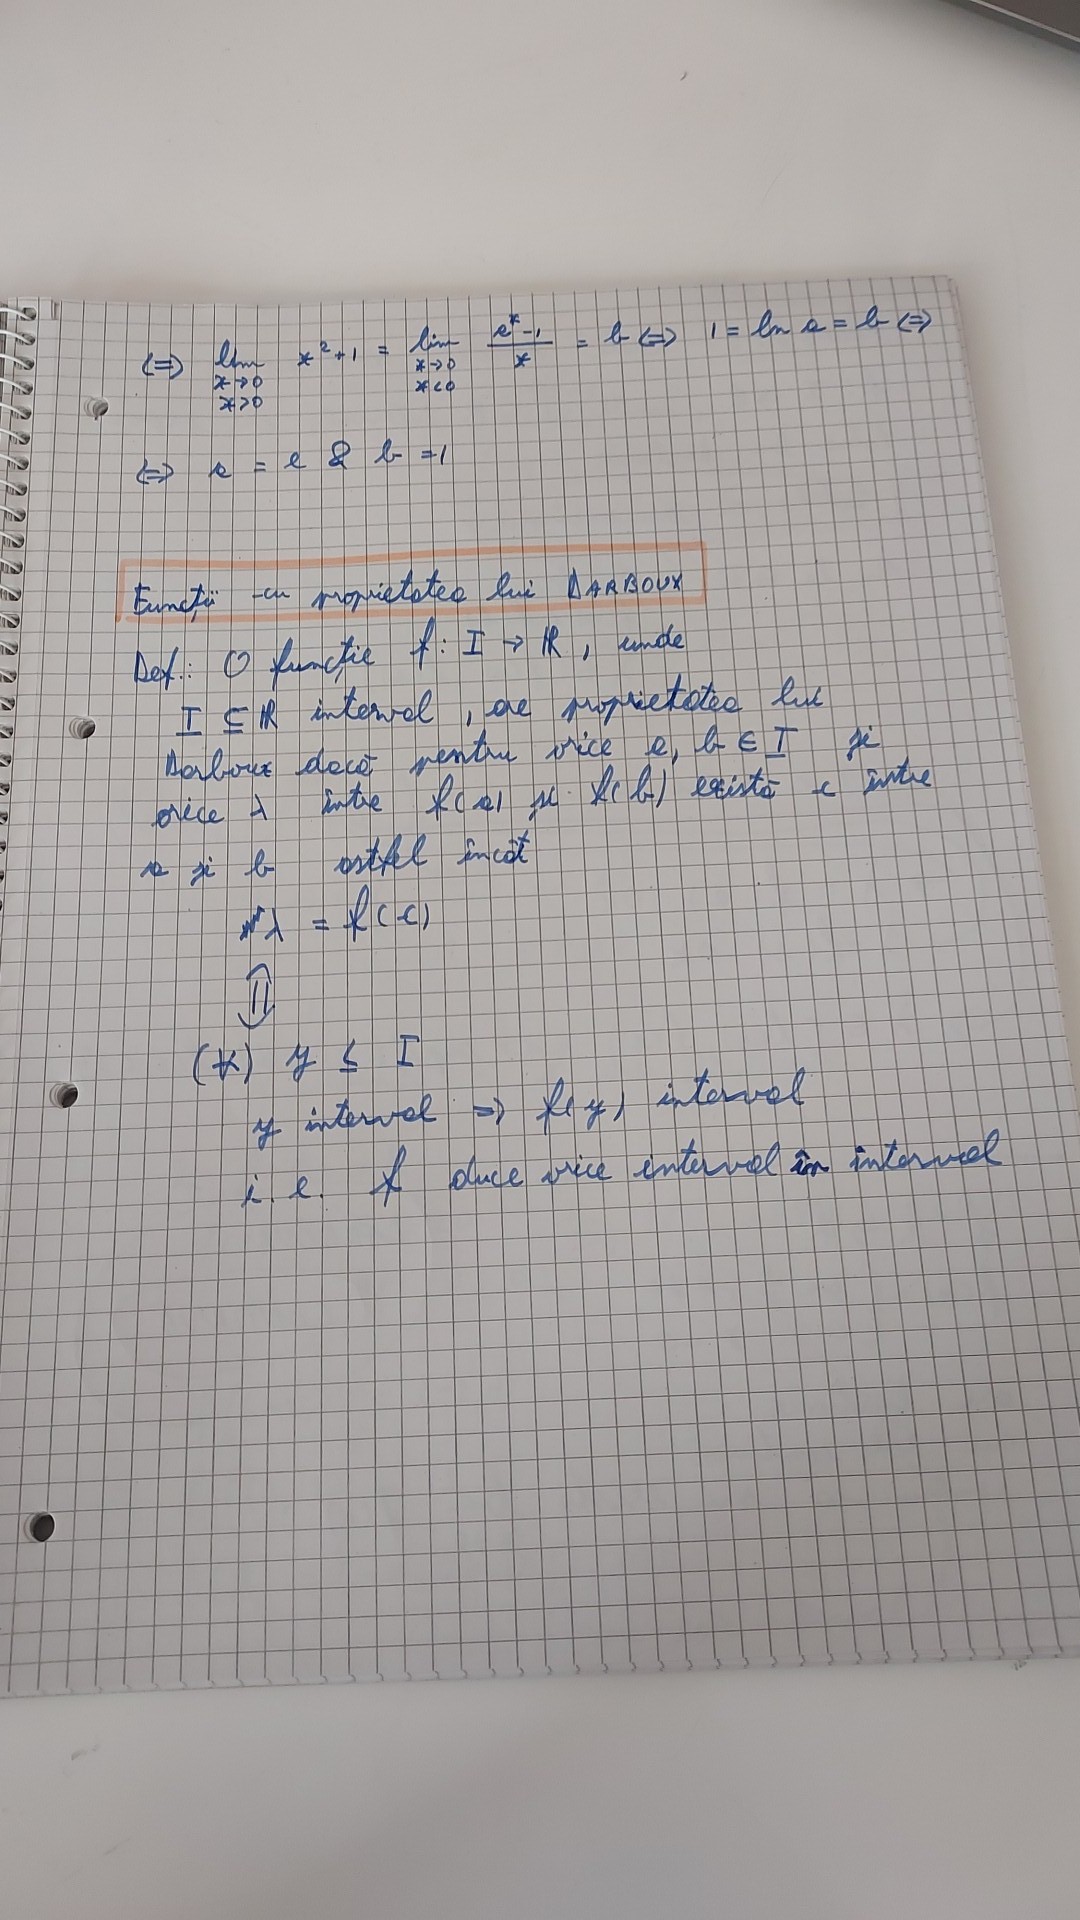 ⇔ lim x² + 1 = lim (a^x - 1)/x = b ⇔ 1 = ln a = b ⇔
x→0 x→0
x>0 x<0
⇔ a = e & b = 1
Funcții cu proprietatea lui DARBOUX
Def.: O funcție f: I → ℝ, unde
I ⊆ ℝ interval, are proprietatea lui
Darboux dacă pentru orice a, b ∈ I și
orice λ între f(a) și f(b) există c între
a și b astfel încât
λ = f(c)
⇕
(∀) y ⊆ I
y interval ⇒ f(y) interval
i.e. f duce orice interval în interval